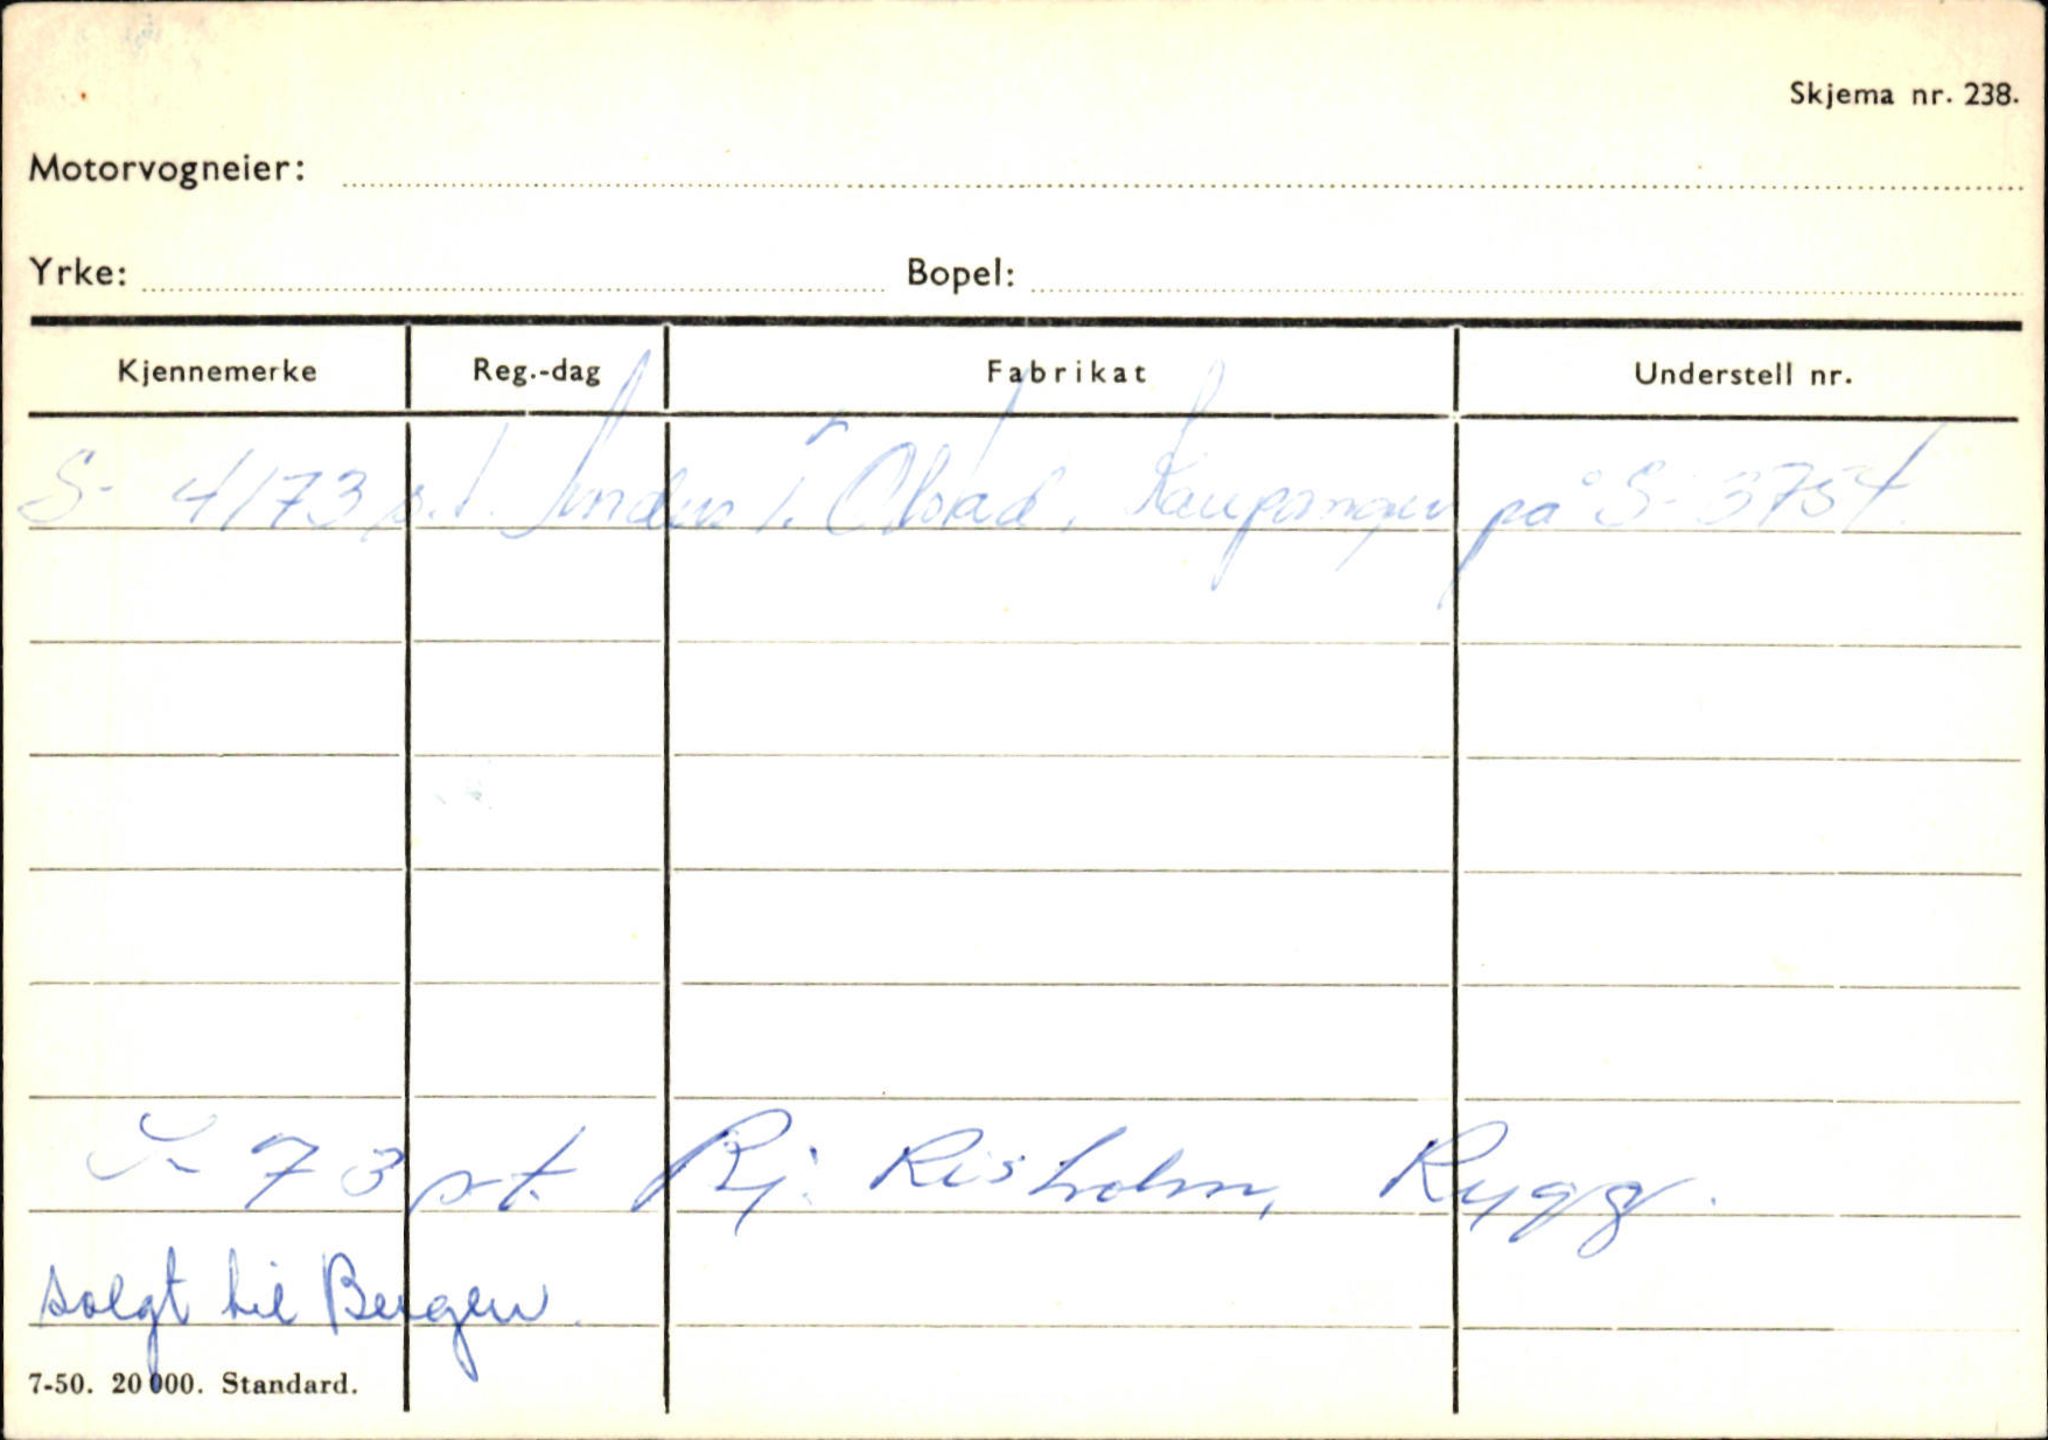 Skjema nr. 238.
Motorvogneier:
Yrke: Bopel:
Kjennemerke Reg.-dag Fabrikat Understell nr.
S- 4173 s.t. Kaupanger på S- 5754.
73 s.t. Risholm, Rygg.
solgt til Bergen.
7-50. 20 000. Standard.